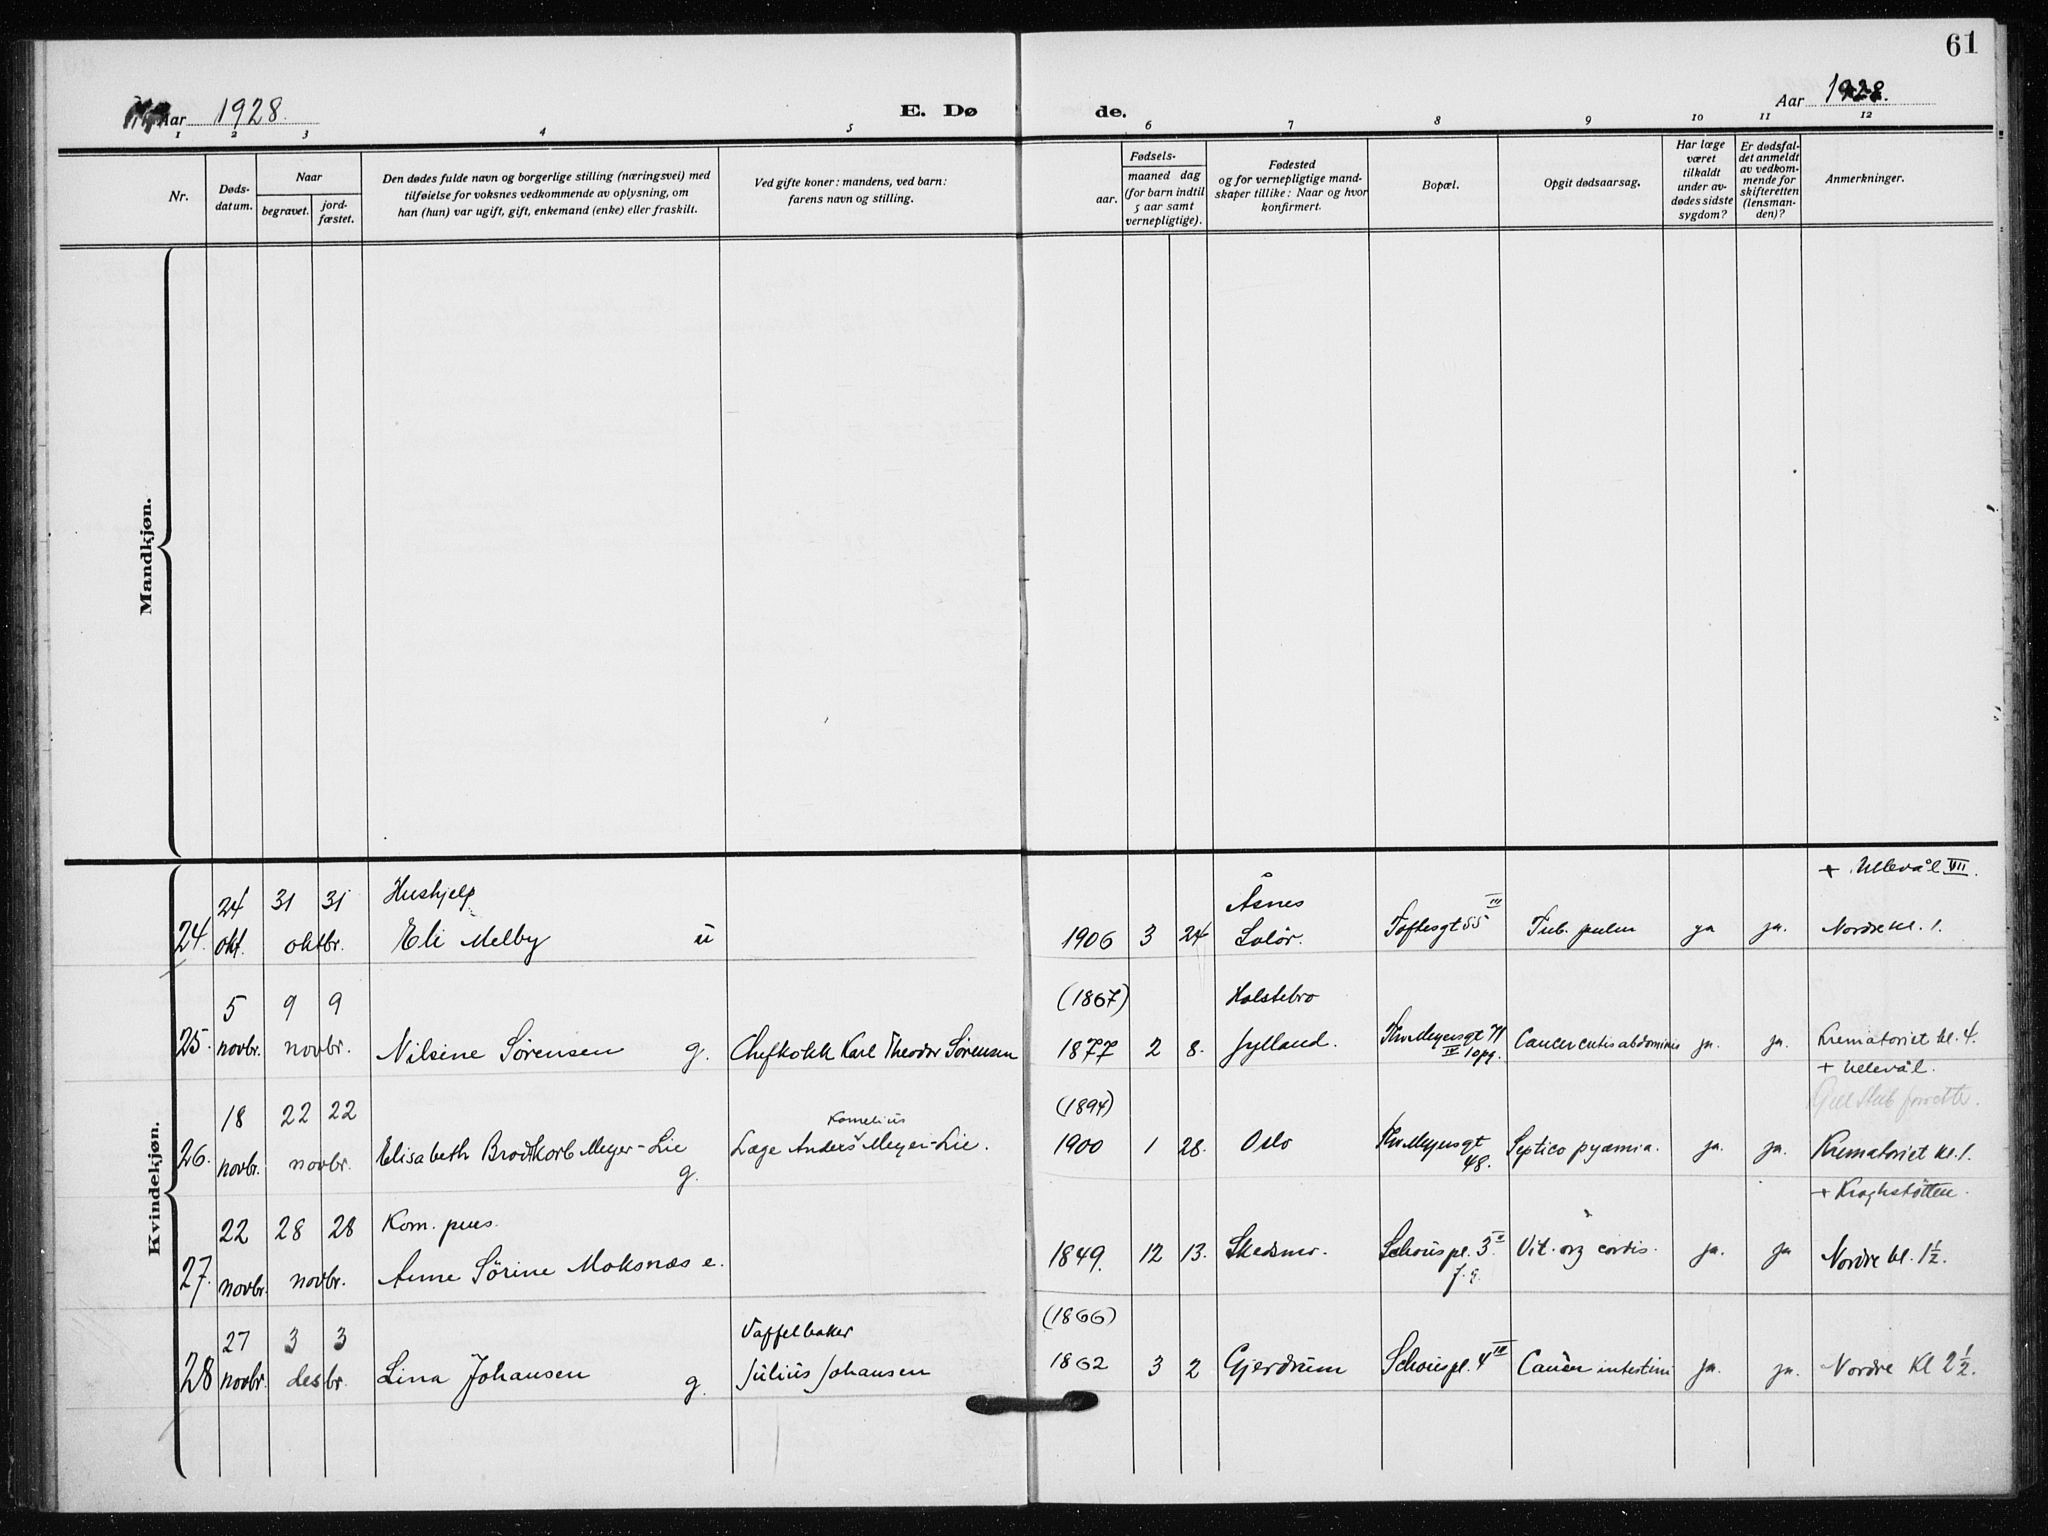 61
Aar 1928.
E. Døde.
Aar 1928.
1 2 3 4 5 6 7 8 9 10 11 12
Nr.
Døds-
datum.
Naar
begravet.
jord-
fæstet.
Den dødes fulde navn og borgerlige stilling (næringsvei) med
tilføielse for voksnes vedkommende av oplysning, om
han (hun) var ugift, gift, enkemand (enke) eller fraskilt.
Ved gifte koner: mandens, ved barn:
farens navn og stilling.
Fødsels-
aar.
maaned dag
(for barn indtil
5 aar samt
vernepligtige).
Fødested
og for vernepligtige mand-
skaper tillike: Naar og hvor
konfirmert.
Bopæl.
Opgit dødsaarsag.
Har læge
været
tilkaldt
under av-
dødes sidste
sygdom?
Er dødsfal-
det anmeldt
av vedkom-
mende for
skifteretten
(lensman-
den)?
Anmerkninger.
Mandkjøn.
Kvindekjøn.
+ Ullevål VII.
24 31 31 Hushjelp Åsnes
24. okt. oktbr. Eli Melby u 1906 3 24 Solör. Toftesgt 55 III Tub. pulm ja ja. Nordre kl. 1.
5 9 9 (1867) Holstebro
25. novbr. novbr. Nilsine Sørensen g. Chefkokk Karl Theodor Sørensen 1877 2 8. Jylland. Thv. Meyersgt 71 Cancer cutis abdominis ja. ja. Krematoriet kl. 4.
IV 10pg.
+ Ullevål.
18 22 22 Kornelius (1894)
26. novbr. novbr. Elisabeth Brodtkorb Meyer-Lie g. Læge Anders Meyer-Lie. 1900 1 28. Oslo Thv. Meyersgt 48. Septico pyæmia. ja. ja. Krematoriet kl. 1.
+ Kroghstøtten.
22 28 28 Kom. pens.
27. novbr. novbr. Anne Sørine Moksnæs e. 1849. 12 13. Skedsmo. Schouspl. 3 II Vit. org cordis. ja. ja Nordre kl. 1½.
27 3 3 Vaffelbaker (1866)
28 novbr. desbr. Lina Johansen g. Julius Johansen 1862 3 2 Gjerdrum Schouspl. 4 IV Cancer intestini ja. ja. Nordre Kl 2½.